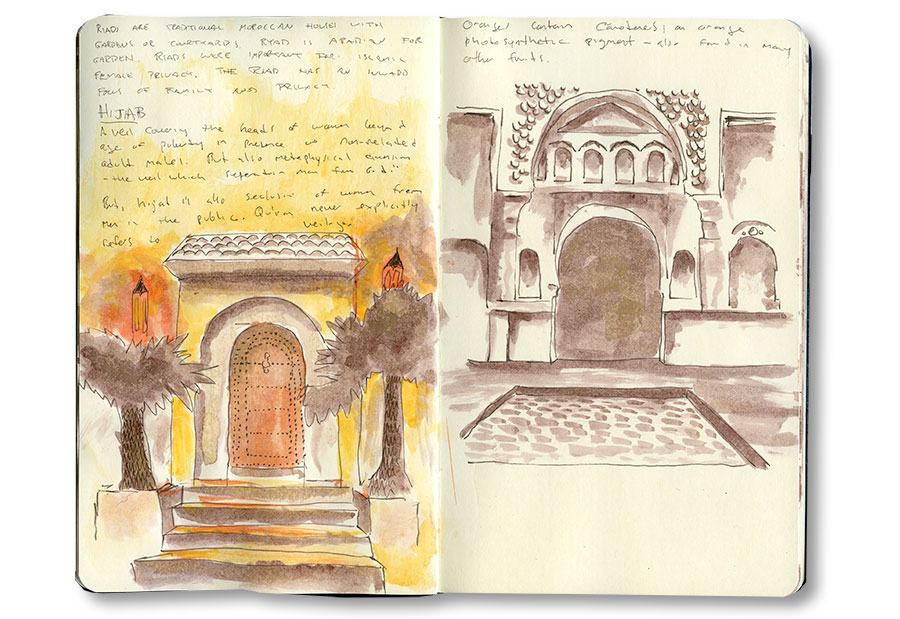 RIADS ARE TRADITIONAL MOROCCAN HOUSES WITH
GARDENS OR COURTYARDS. RYAD IS ARABIAN FOR
GARDEN. RIADS WERE IMPORTANT FOR ISLAMIC
FEMALE PRIVACY. THE RIAD HAS AN INWARD
FOCUS OF FAMILY AND PRIVACY.
HIJAB
A veil covering the heads of women beyond
age of puberty in presence of non-related
adult males. But also metaphysical
- the veil which separates man from God."
But, hijab is also seclusion of women from
men in the public. Qur'an never explicitly
refers to veiling.
Oranges contain Carotenes; an orange
photosynthetic pigment - also found in many
other fruits.